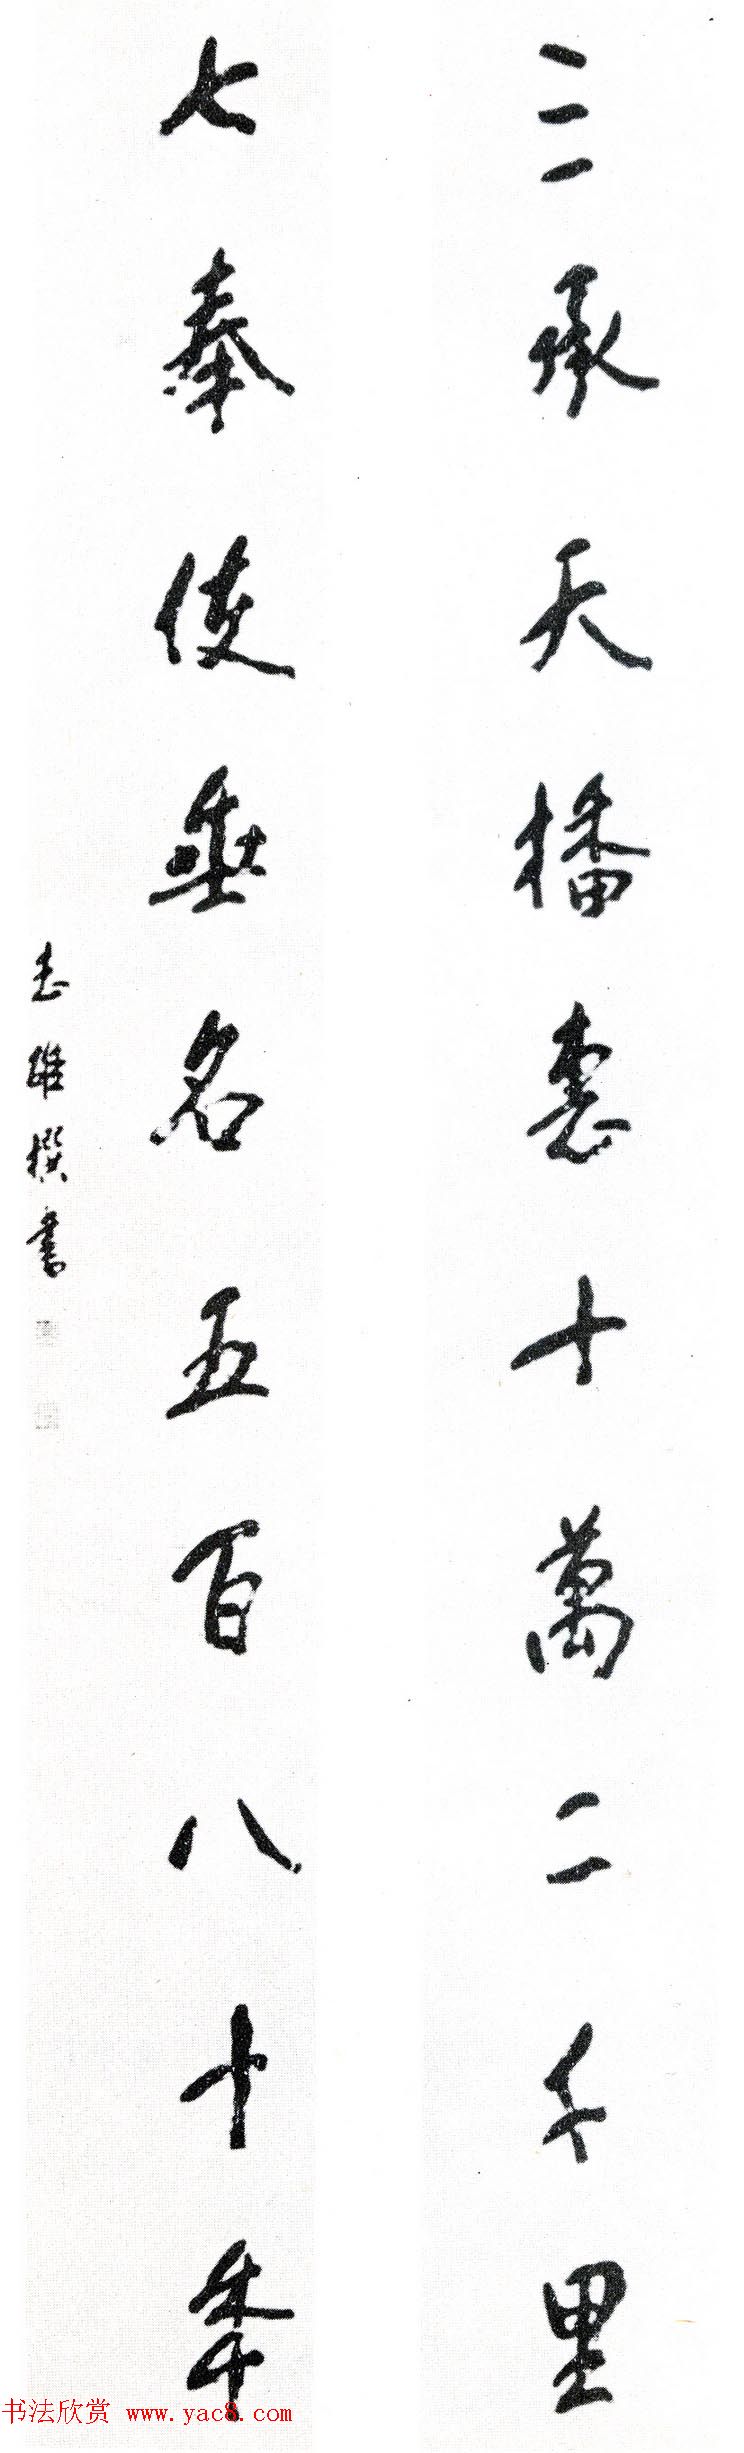 三承天播惠十萬二千里
七奉使垂名五百八十年
志雄撰書
书法欣赏 www.yac8.com